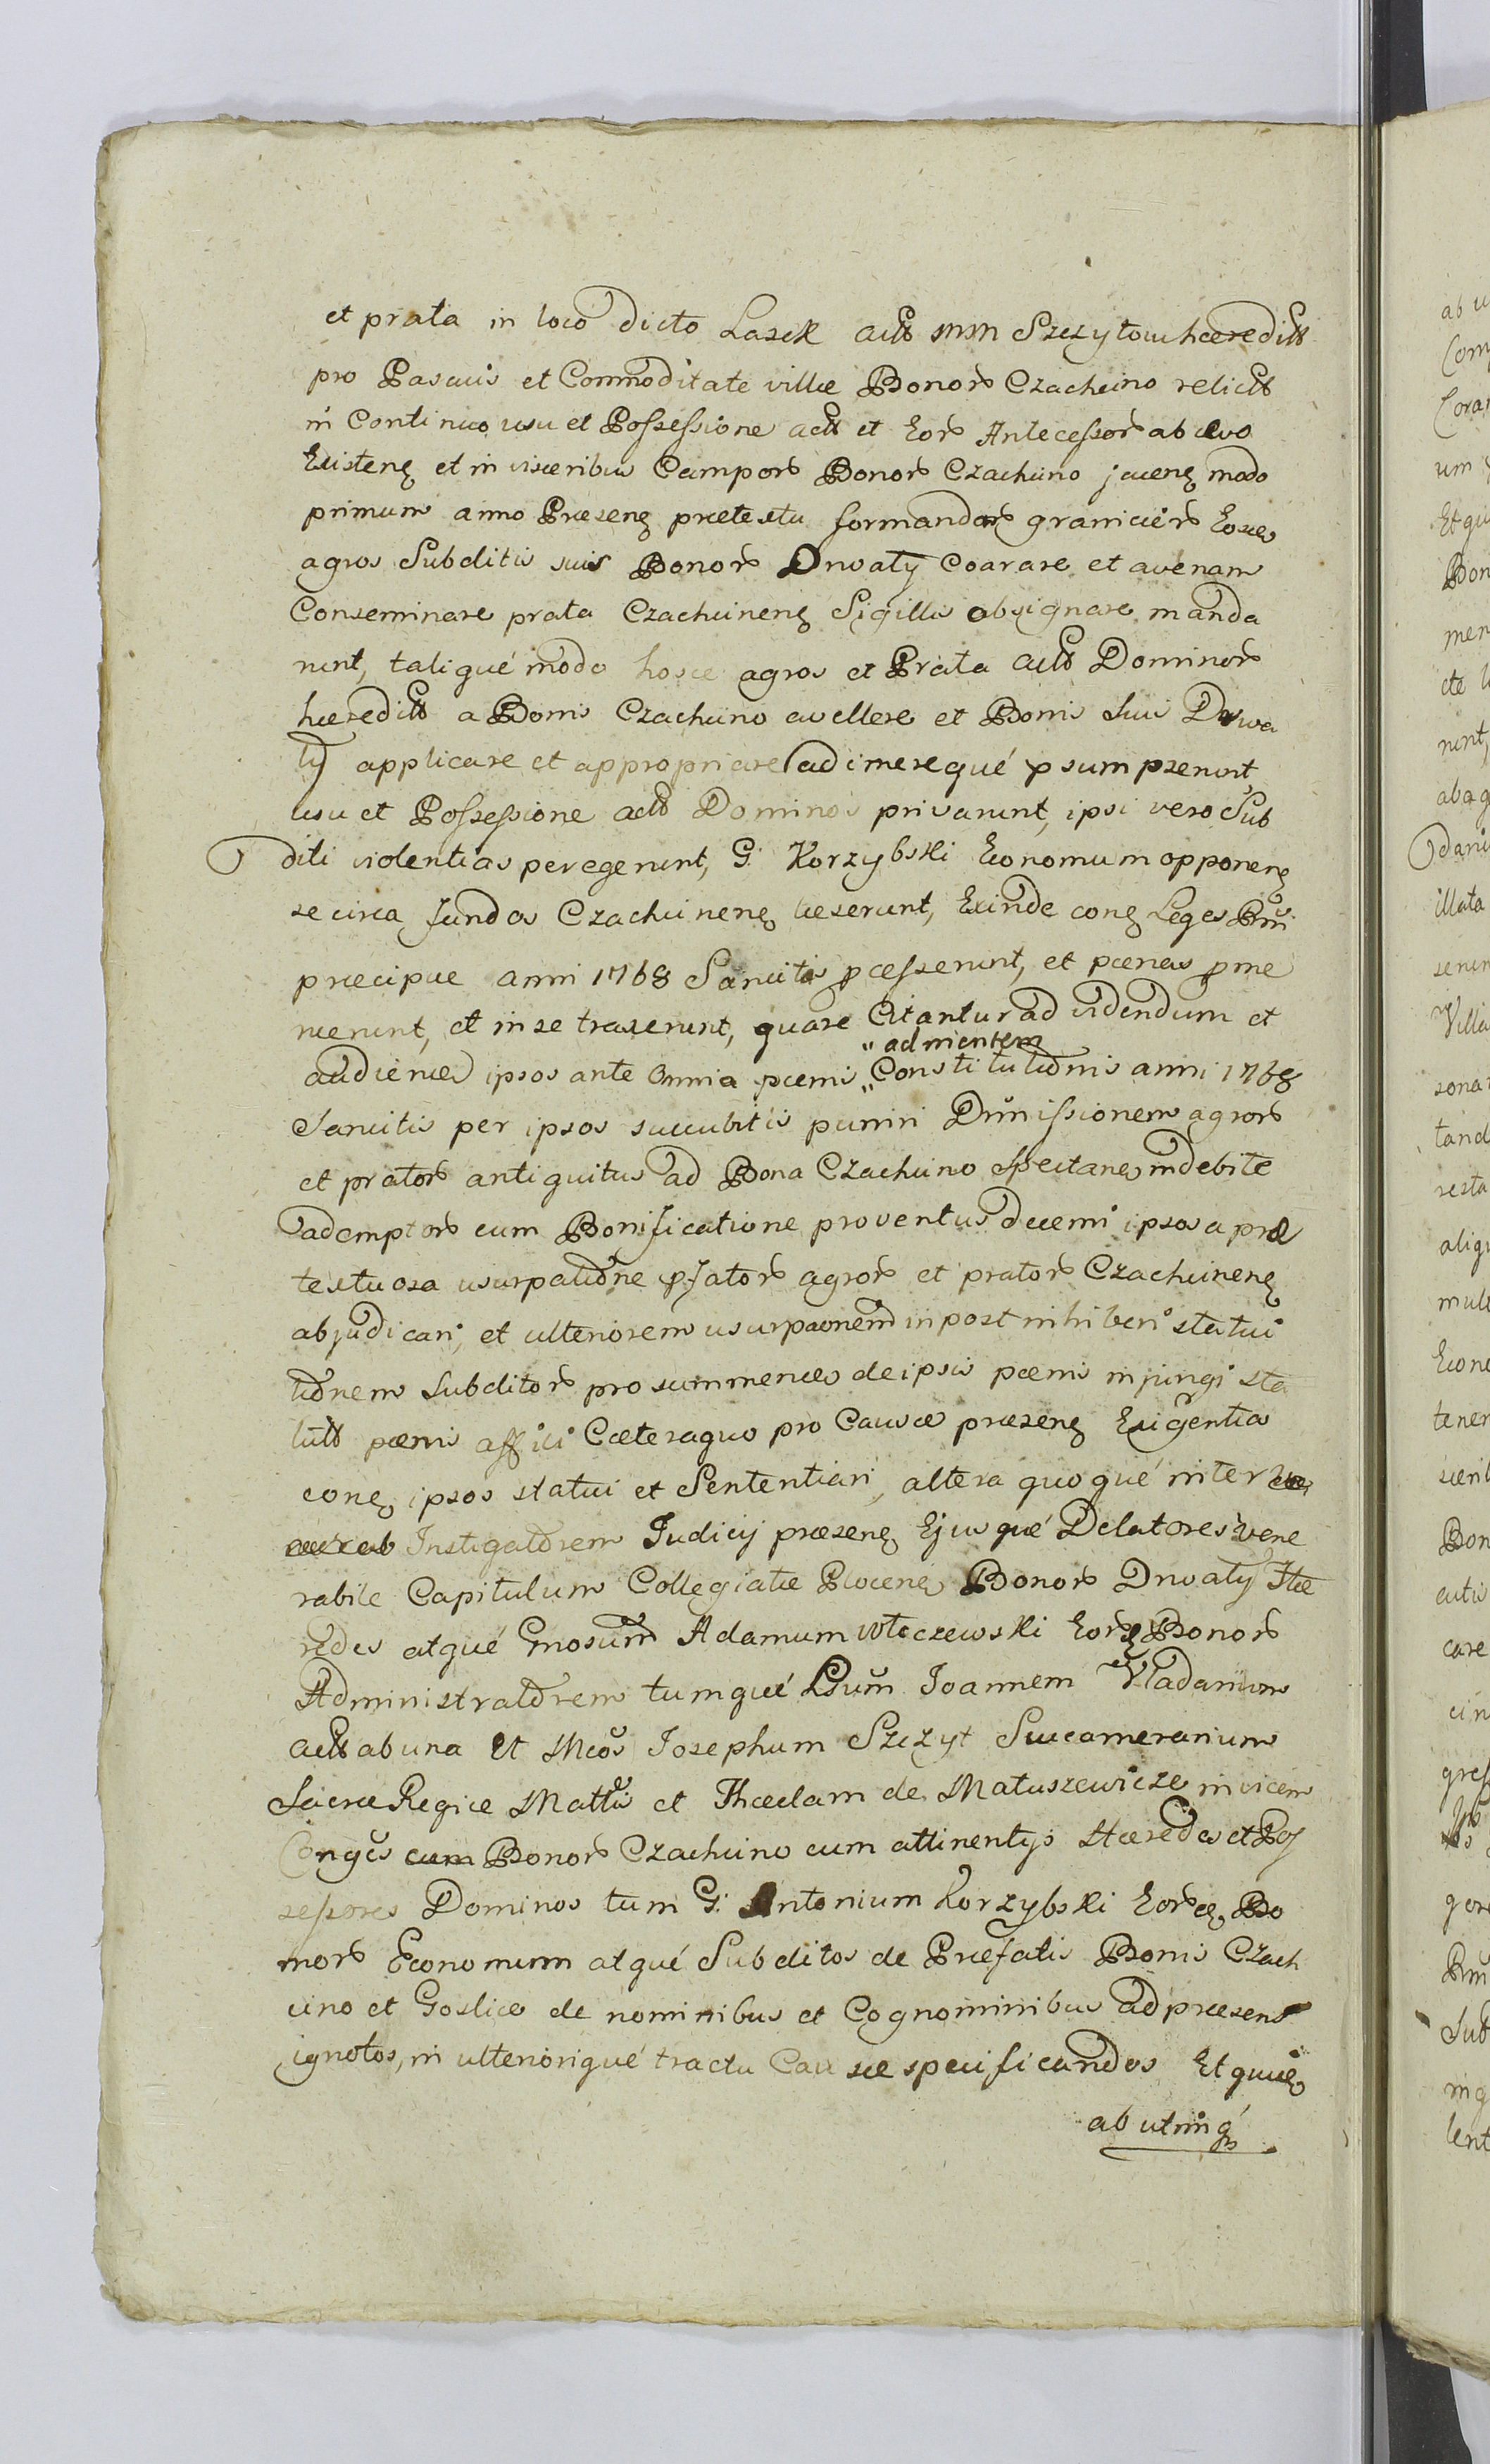 et prata in loco dicto Lasek actt MM Szczytow hæreditt
pro Pascuis et Commoditate villæ Bonorū Czachcino relictt
in Continuo usu et Possessione actt et Eorū Antecessorū ab ævo
Existenē et in visceribus Camporū Bonorū Czachcino jacenē modo
primum anno Præsenē prætextu formandorū granicierū Eosce
agros Subditis suis Bonorū Drwały Coarare et avenam
Conseminare prata Czachcinenē Sigillis obsignare manda
runt, taliqué modo hosce agros et Prata actt Dominorū
hæreditt a Bonis Czachcino avellere et Bonis Suis Drwa
ły applicare et appropriare adimerequé pŝumpserunt
usu et Possessione actt Dominos privarunt, ipsi vero Sub
diti violentias peregerunt, G: Korzybski Economum opponenē
se circa fundos Czachcinenē læserunt, Exinde conē Leges Rni
præcipue anni 1768 Sancitas pcesserunt, et pœnas pme
ruerunt, et in se traxerunt, quare Citantur ad videndum et
audiend ipsos ante Omnia pœnis „ad mentem„ Constitutionis anni 1768
Sancitis per ipsos succubitis puniri Dimissionem agrorū
et pratorū antiquitus ad Bona Czachcino Spectanē indebite
ademptorū cum Bonificatione proventus decerni ipsos a præ
textuosa usurpatione pfatorū agrorū et pratorū Czachcinenē
abjudicari, et ulteriorem usurpaonem in post inhiberi statui
tionem Subditorū pro summend de ipsis pœnis injungi sta
tutt pœnis affici Cæteraquo pro Causæ præsenē Exigentia
conē ipsos statui et Sententiari, altera quoqué inter
Instigatorem Iudicij præsenē Ejusqué Delatores vene
rabile Capitulum Collegiatæ Plocenē Bonorū Drwały Hæ
redes atqué Gnosum Adamum Włoczewski Eorē Bonorū
Administratorem tumqué Lsum Joannem Vladarium
actt ab una Et Mcos Josephum Szczyt Succamerarium
Sacræ Regiæ Mattis et Theclam de Matuszewicze invicem
Conges Bonorū Czachcino cum attinentijs Hæredes et Pos
sessores Dominos tum G: Antonium Korzybski Eorce Bo
norū Economum atqué Subditos de Præfatis Bonis Czach
cino et Goslice de nominibus et Cognominibus ad præsens
ignotos, in ulteriorique tractu Causæ specificandos Et quiē
ab utrinq́